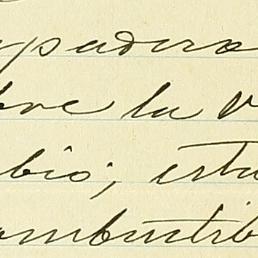 apadero
bre la v
bio; esta
ombustib